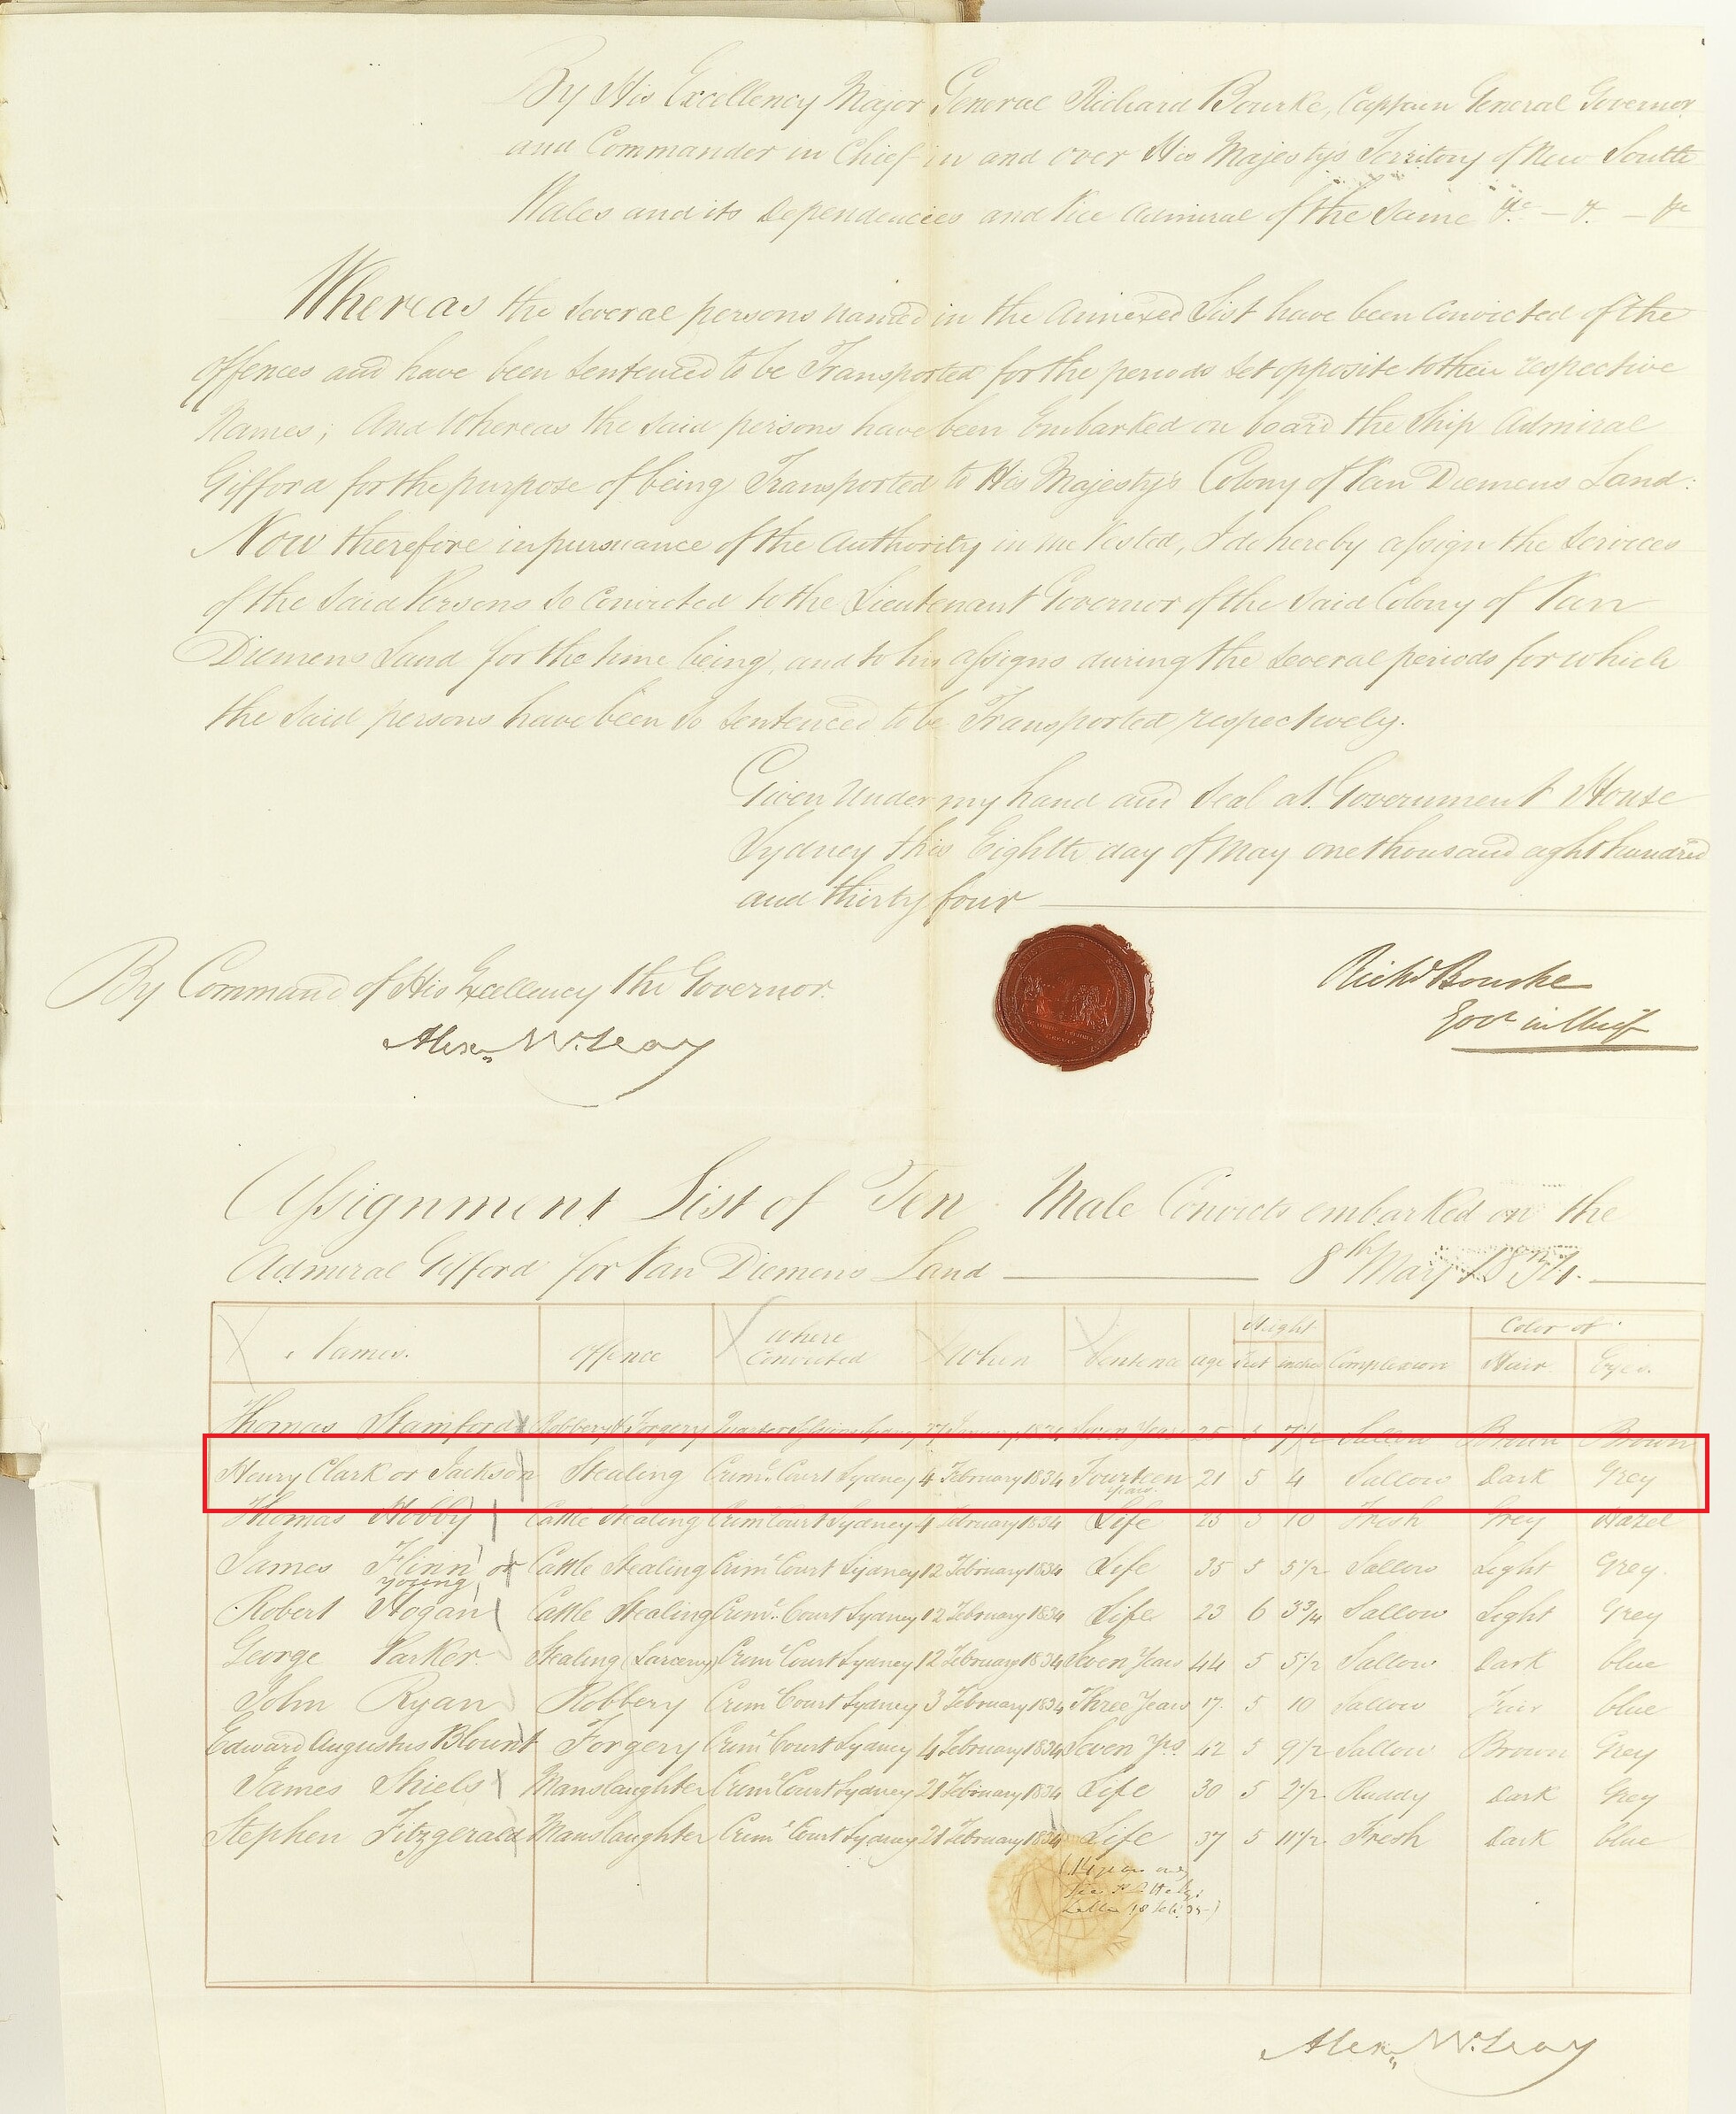 By His Excellency Major General Richard Bourke, Captain General Governor
and Commander in Chief in and over His Majesty's Territory of New South
Wales and its Dependencies and Vice Admiral of the Same &c — &c — &c
Whereas the several persons named in the Annexed List have been Convicted of the
offences and have been Sentenced to be Transported for the periods set opposite to their respective
Names; And Whereas the said persons have been Embarked on board the Ship Admiral
Gifford for the purpose of being Transported to His Majesty's Colony of Van Diemens Land:
Now therefore in pursuance of the Authority in me Vested, I do hereby assign the Services
of the said Persons so Convicted to the Lieutenant Governor of the said Colony of Van
Diemens Land for the time being, and to his assigns during the several periods for which
the said persons have been so sentenced to be Transported respectively.
Given Under my hand and Seal at Government House
Sydney this Eighth day of May one thousand eight hundred
and thirty four
By Command of His Excellency the Governor.
Richd Bourke
Govr in Chief
Alexr McLeay
Assignment List of Ten Male Convicts embarked on the
Admiral Gifford for Van Diemens Land — 8th May 1834.
Names. Offence Where Convicted When Sentence Age Height Feet Inches Complexion Color of Hair Eyes.
Thomas Stamford Robbery & Forgery Quarter Sessions 1834 Seven Years 25 5 7½ Sallow Brown Brown
Henry Clark or Jackson Stealing Criml Court Sydney 4 February 1834 Fourteen years 21 5 4 Sallow Dark Grey
Thomas Hobby Cattle Stealing Criml Court Sydney 4 February 1834 Life 23 5 10 Fresh Grey Hazel
James Flinn or young Cattle Stealing Criml Court Sydney 12 February 1834 Life 35 5 5½ Sallow Light Grey.
Robert Hogan Cattle Stealing Criml Court Sydney 12 February 1834 Life 23 6 3¾ Sallow Light Grey
George Parker. Stealing (Larceny) Criml Court Sydney 12 February 1834 Seven Years 44 5 5½ Sallow Dark blue
John Ryan Robbery Criml Court Sydney 3 February 1834 Three Years 17. 5 10 Sallow Fair blue
Edward Augustus Blount Forgery Criml Court Sydney 4 February 1834 Seven Yrs 42 5 9½ Sallow Brown Grey
James Shiels Manslaughter Criml Court Sydney 21 February 1834 Life 30 5 2½ Ruddy Dark Grey
Stephen Fitzgerald Manslaughter Criml Court Sydney 21 February 1834 Life 37 5 11½ Fresh Dark blue
(14 years only
See
Letter
Alexr McLeay